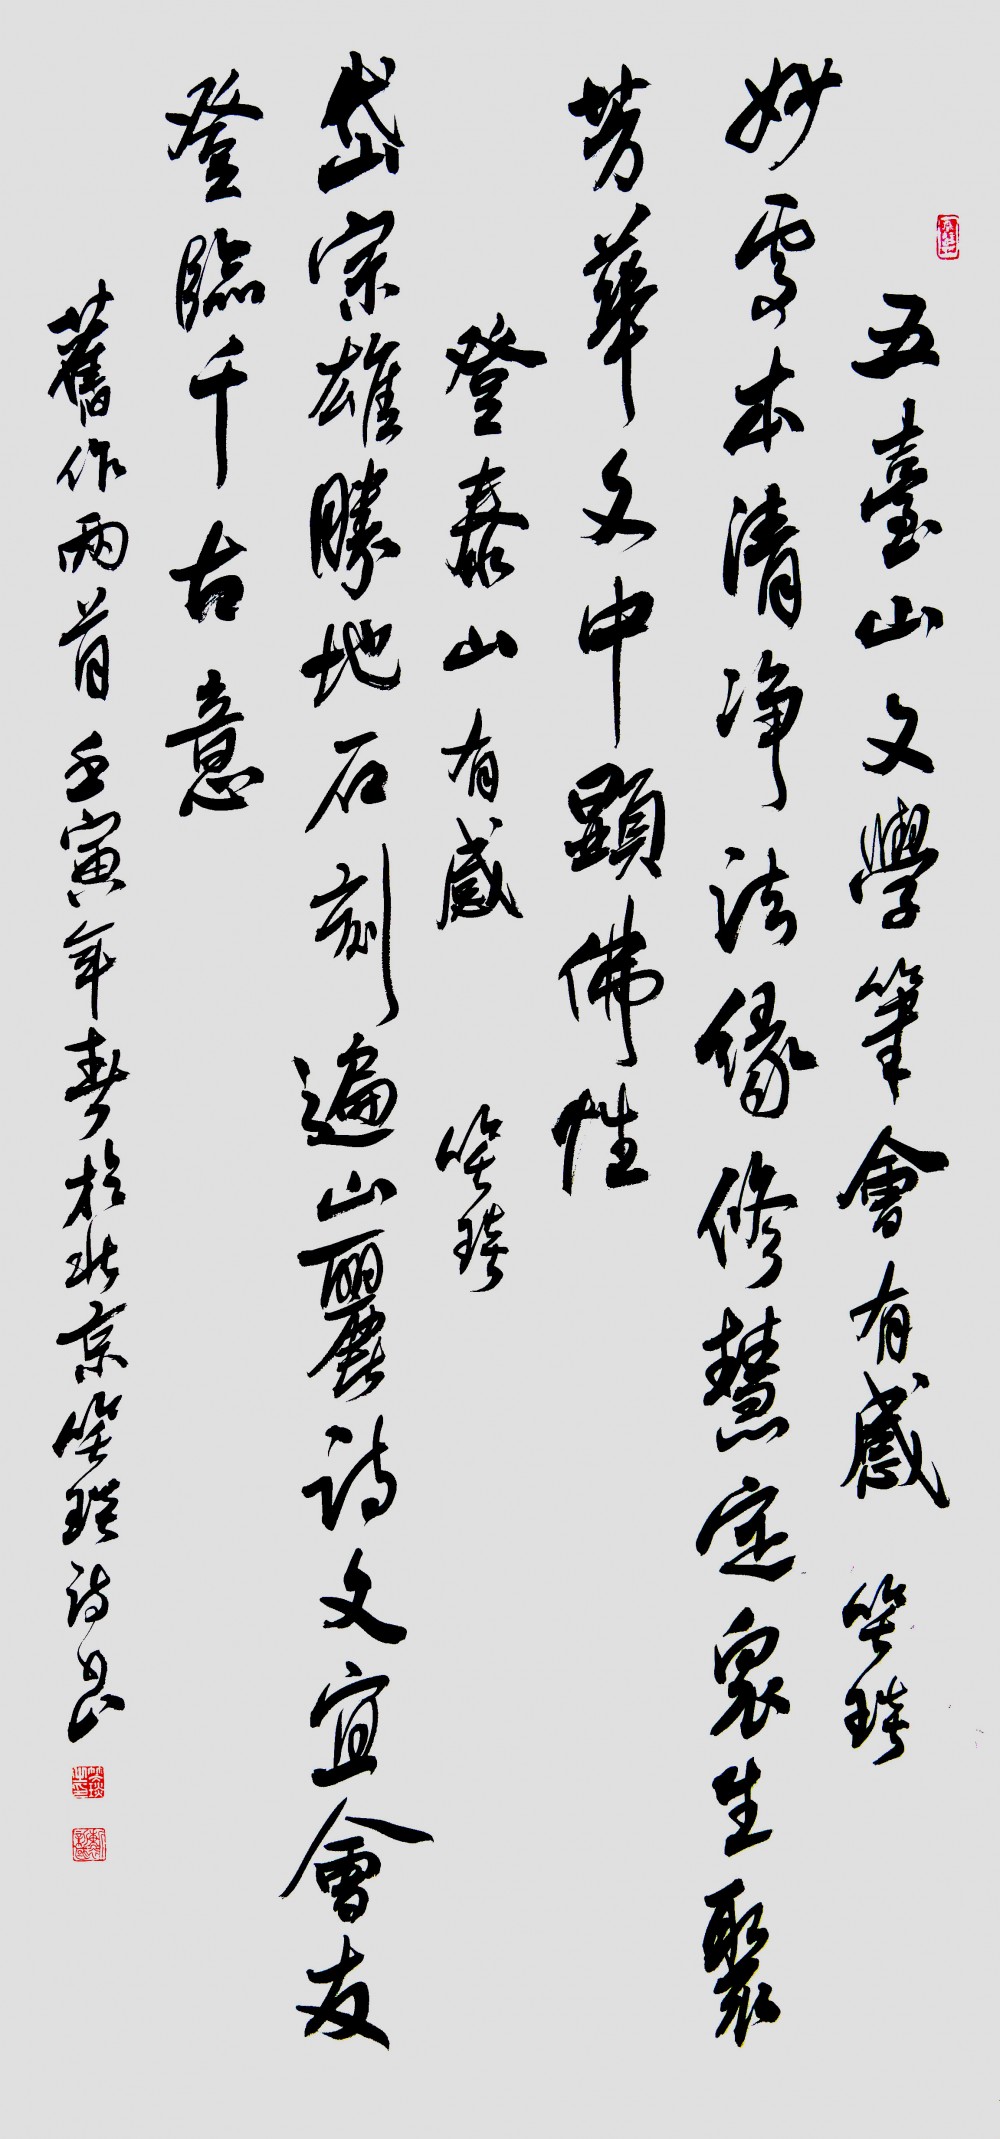 五臺山文學筆會有感 笑琰
妙處本清净法緣修慧定衆生聚
芳華文中顯佛性
登泰山有感 笑琰
岱宗雄勝地石刻遍山麗詩文宜會友
登臨千古意
舊作兩首壬寅年春於北京笑琰詩书